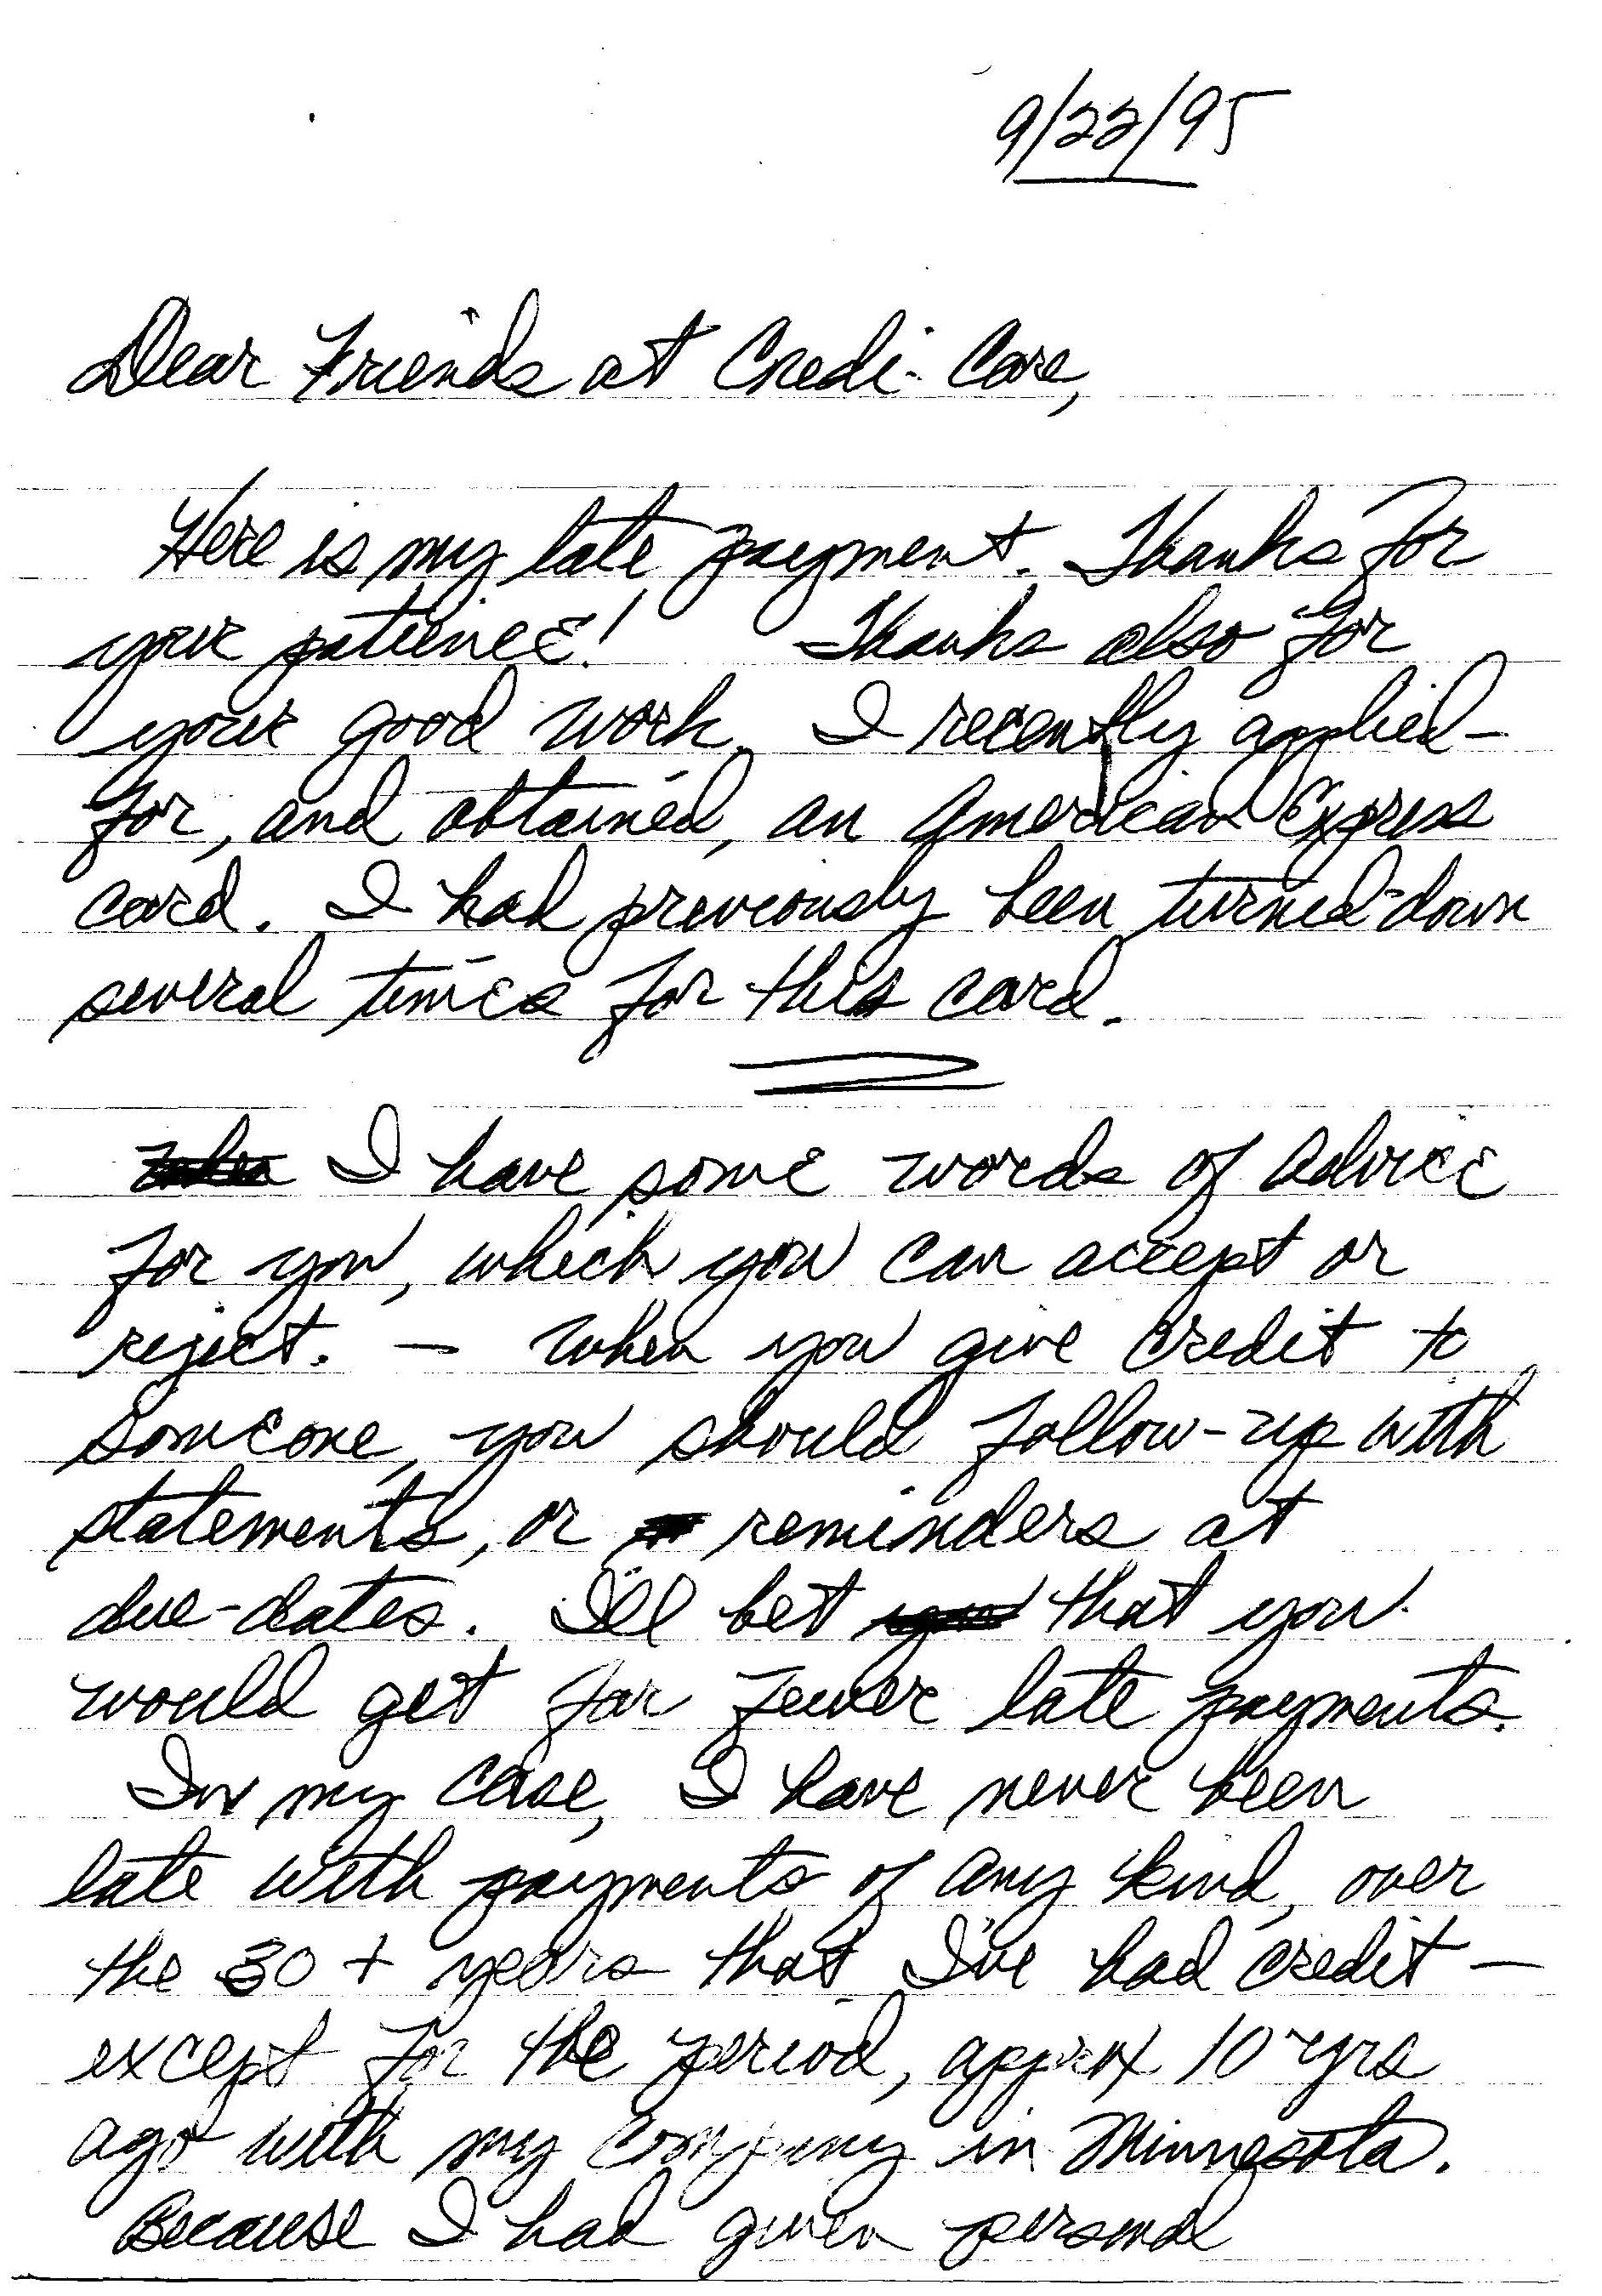 9/22/95
Dear Friends at Credi-Care,
Here is my late payment. Thanks for
your patience! Thanks also for
your good work. I recently applied-
for, and obtained, an American Express
card. I had previously been turned-down
several times for this card.
I have some words of advice
for you, which you can accept or
reject. — When you give credit to
someone, you should follow-up with
statements, or reminders at
due-dates. I'll bet that you
would get far fewer late payments.
In my case, I have never been
late with payments of any kind, over
the 30+ years that I've had credit —
except for the period, approx 10 yrs
ago with my company in Minnesota.
Because I had given personal